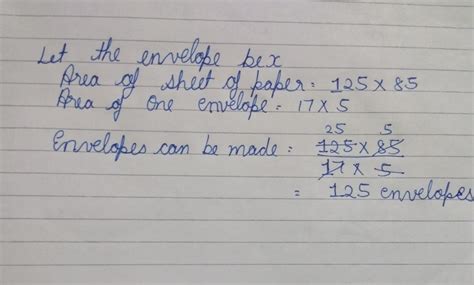 Let the envelope be x
Area of sheet of paper = 125 x 85
Area of one envelope = 17 x 5
25 5
Envelopes can be made = 125 x 85
17 x 5
= 125 envelopes